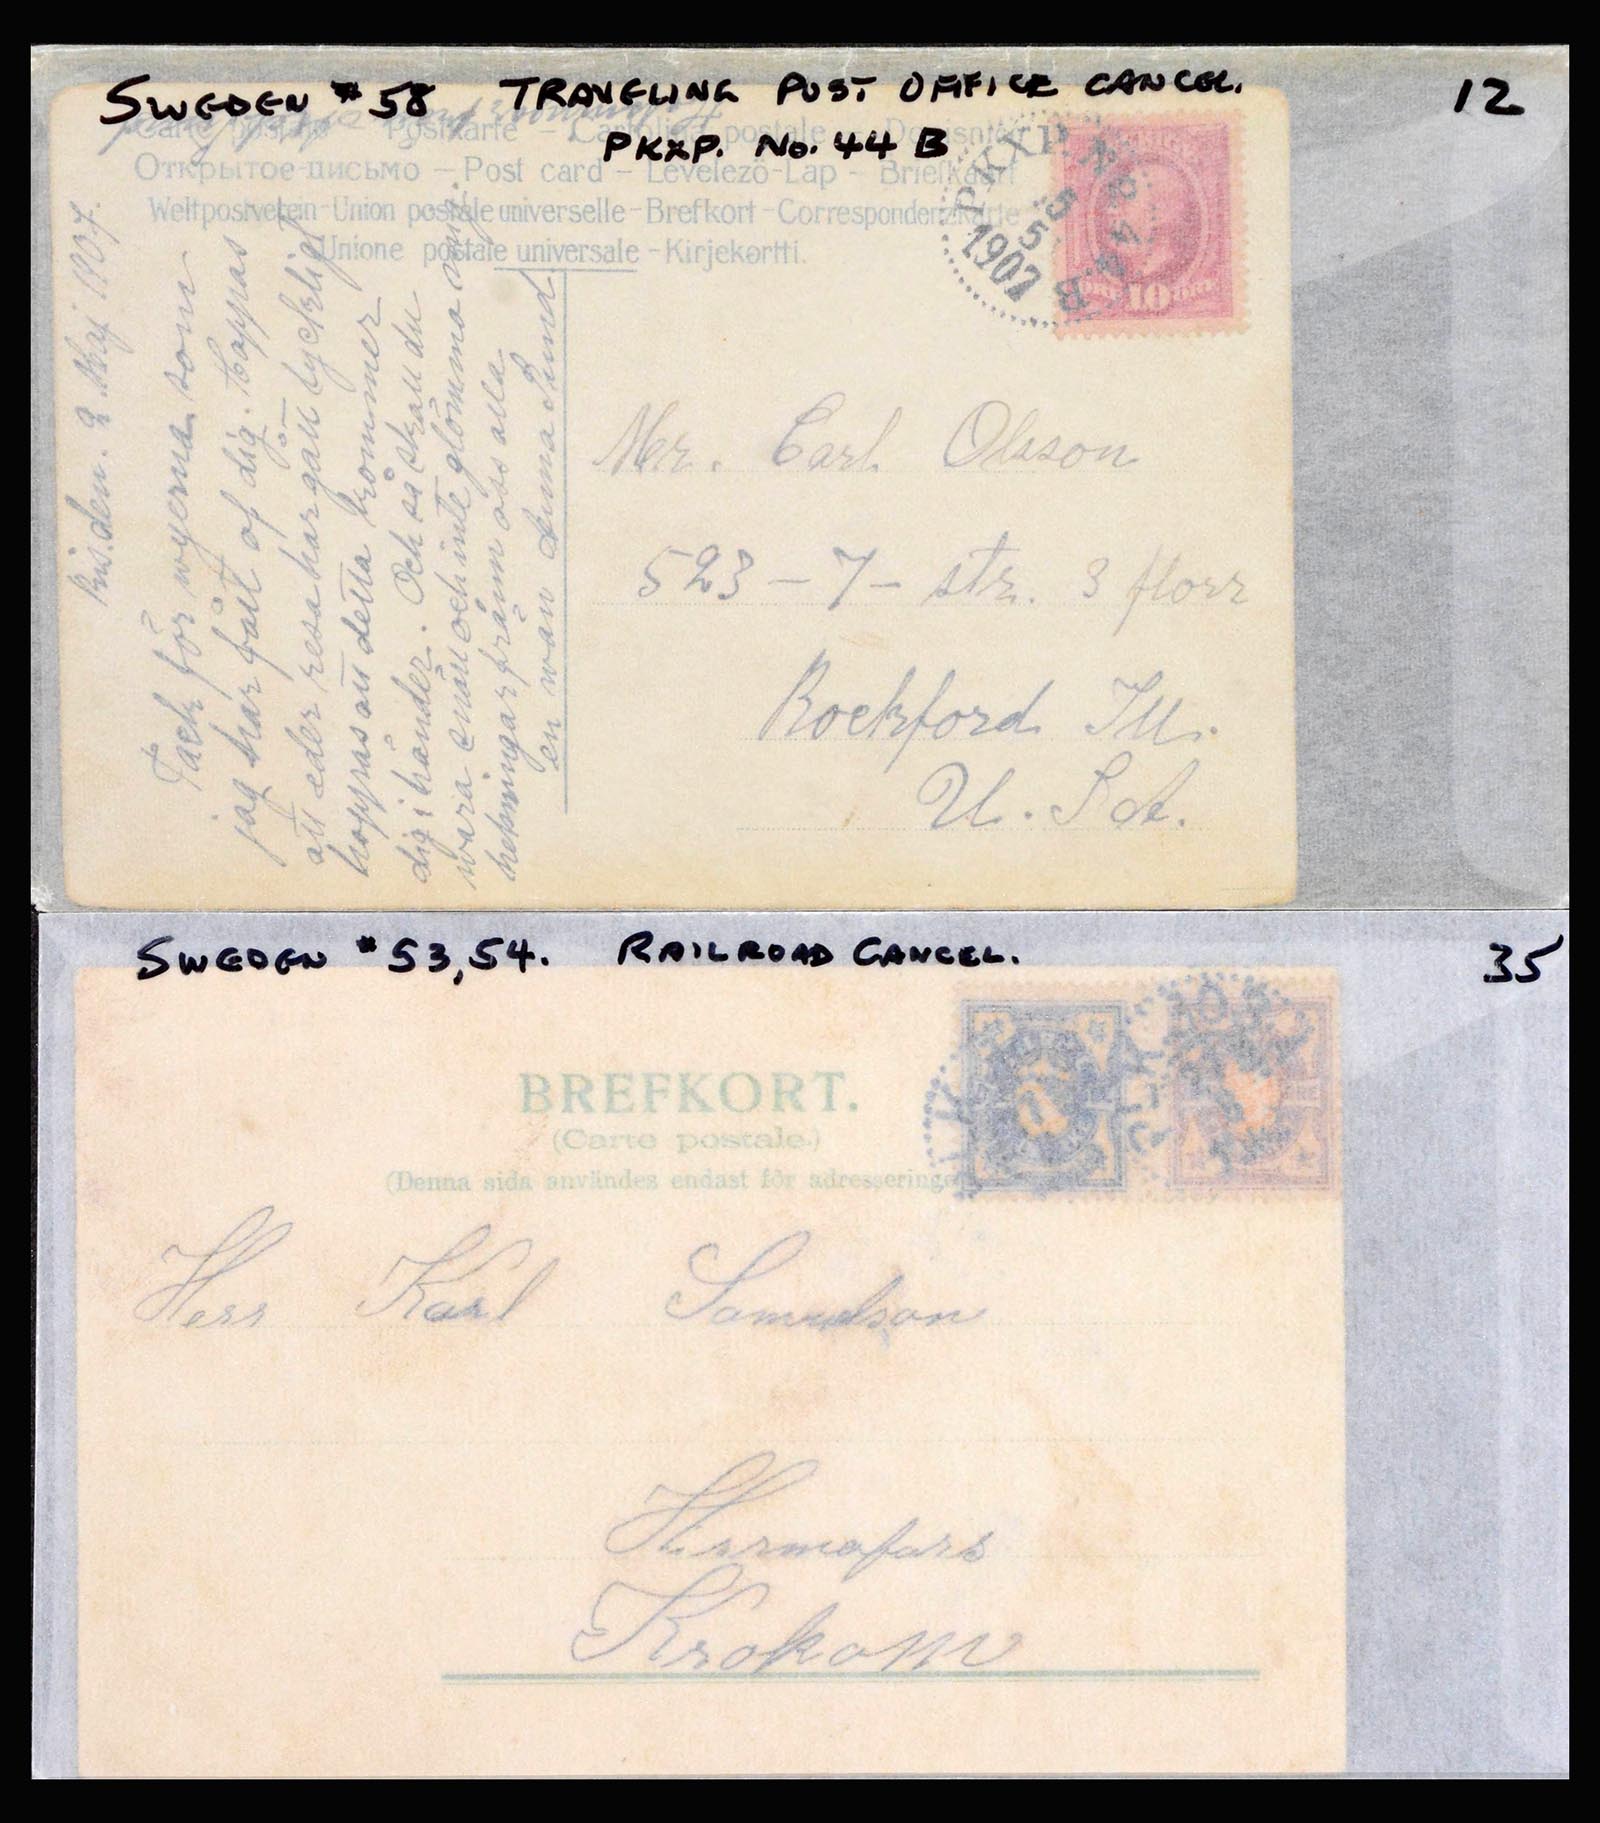 SWEDEN #58 TRAVELING POST OFFICE CANCEL. 12
PKXP. No. 44 B
Carte postale – Postkarte – Cartolina postale – Dopisnica
Открытое письмо – Post card – Levelező-Lap – Briefkaart
Weltpostverein-Union postale universelle-Brefkort-Correspondenzkarte
Unione postale universale - Kirjekortti.
PKXP. No 44 B
5
5
1907
10
ÖRE ÖRE
den. 2 Maj 1907.
Tack för wyerna som
jag har fått af dig. Hoppas
att eder resa har gått lyckligt
hoppas att detta kommer
dig i händer. Och så skall du
wara snäll och inte glömma mig.
helsningar från oss alla
en wän Anna Sund
Mr. Carl Olsson
523 – 7 – str. 3 florr
Rockford Ill.
U. S. A.
SWEDEN #53,54. RAILROAD CANCEL. 35
BREFKORT.
(Carte postale.)
(Denna sida användes endast för adressering
Herr Karl Samuelson
Krokom